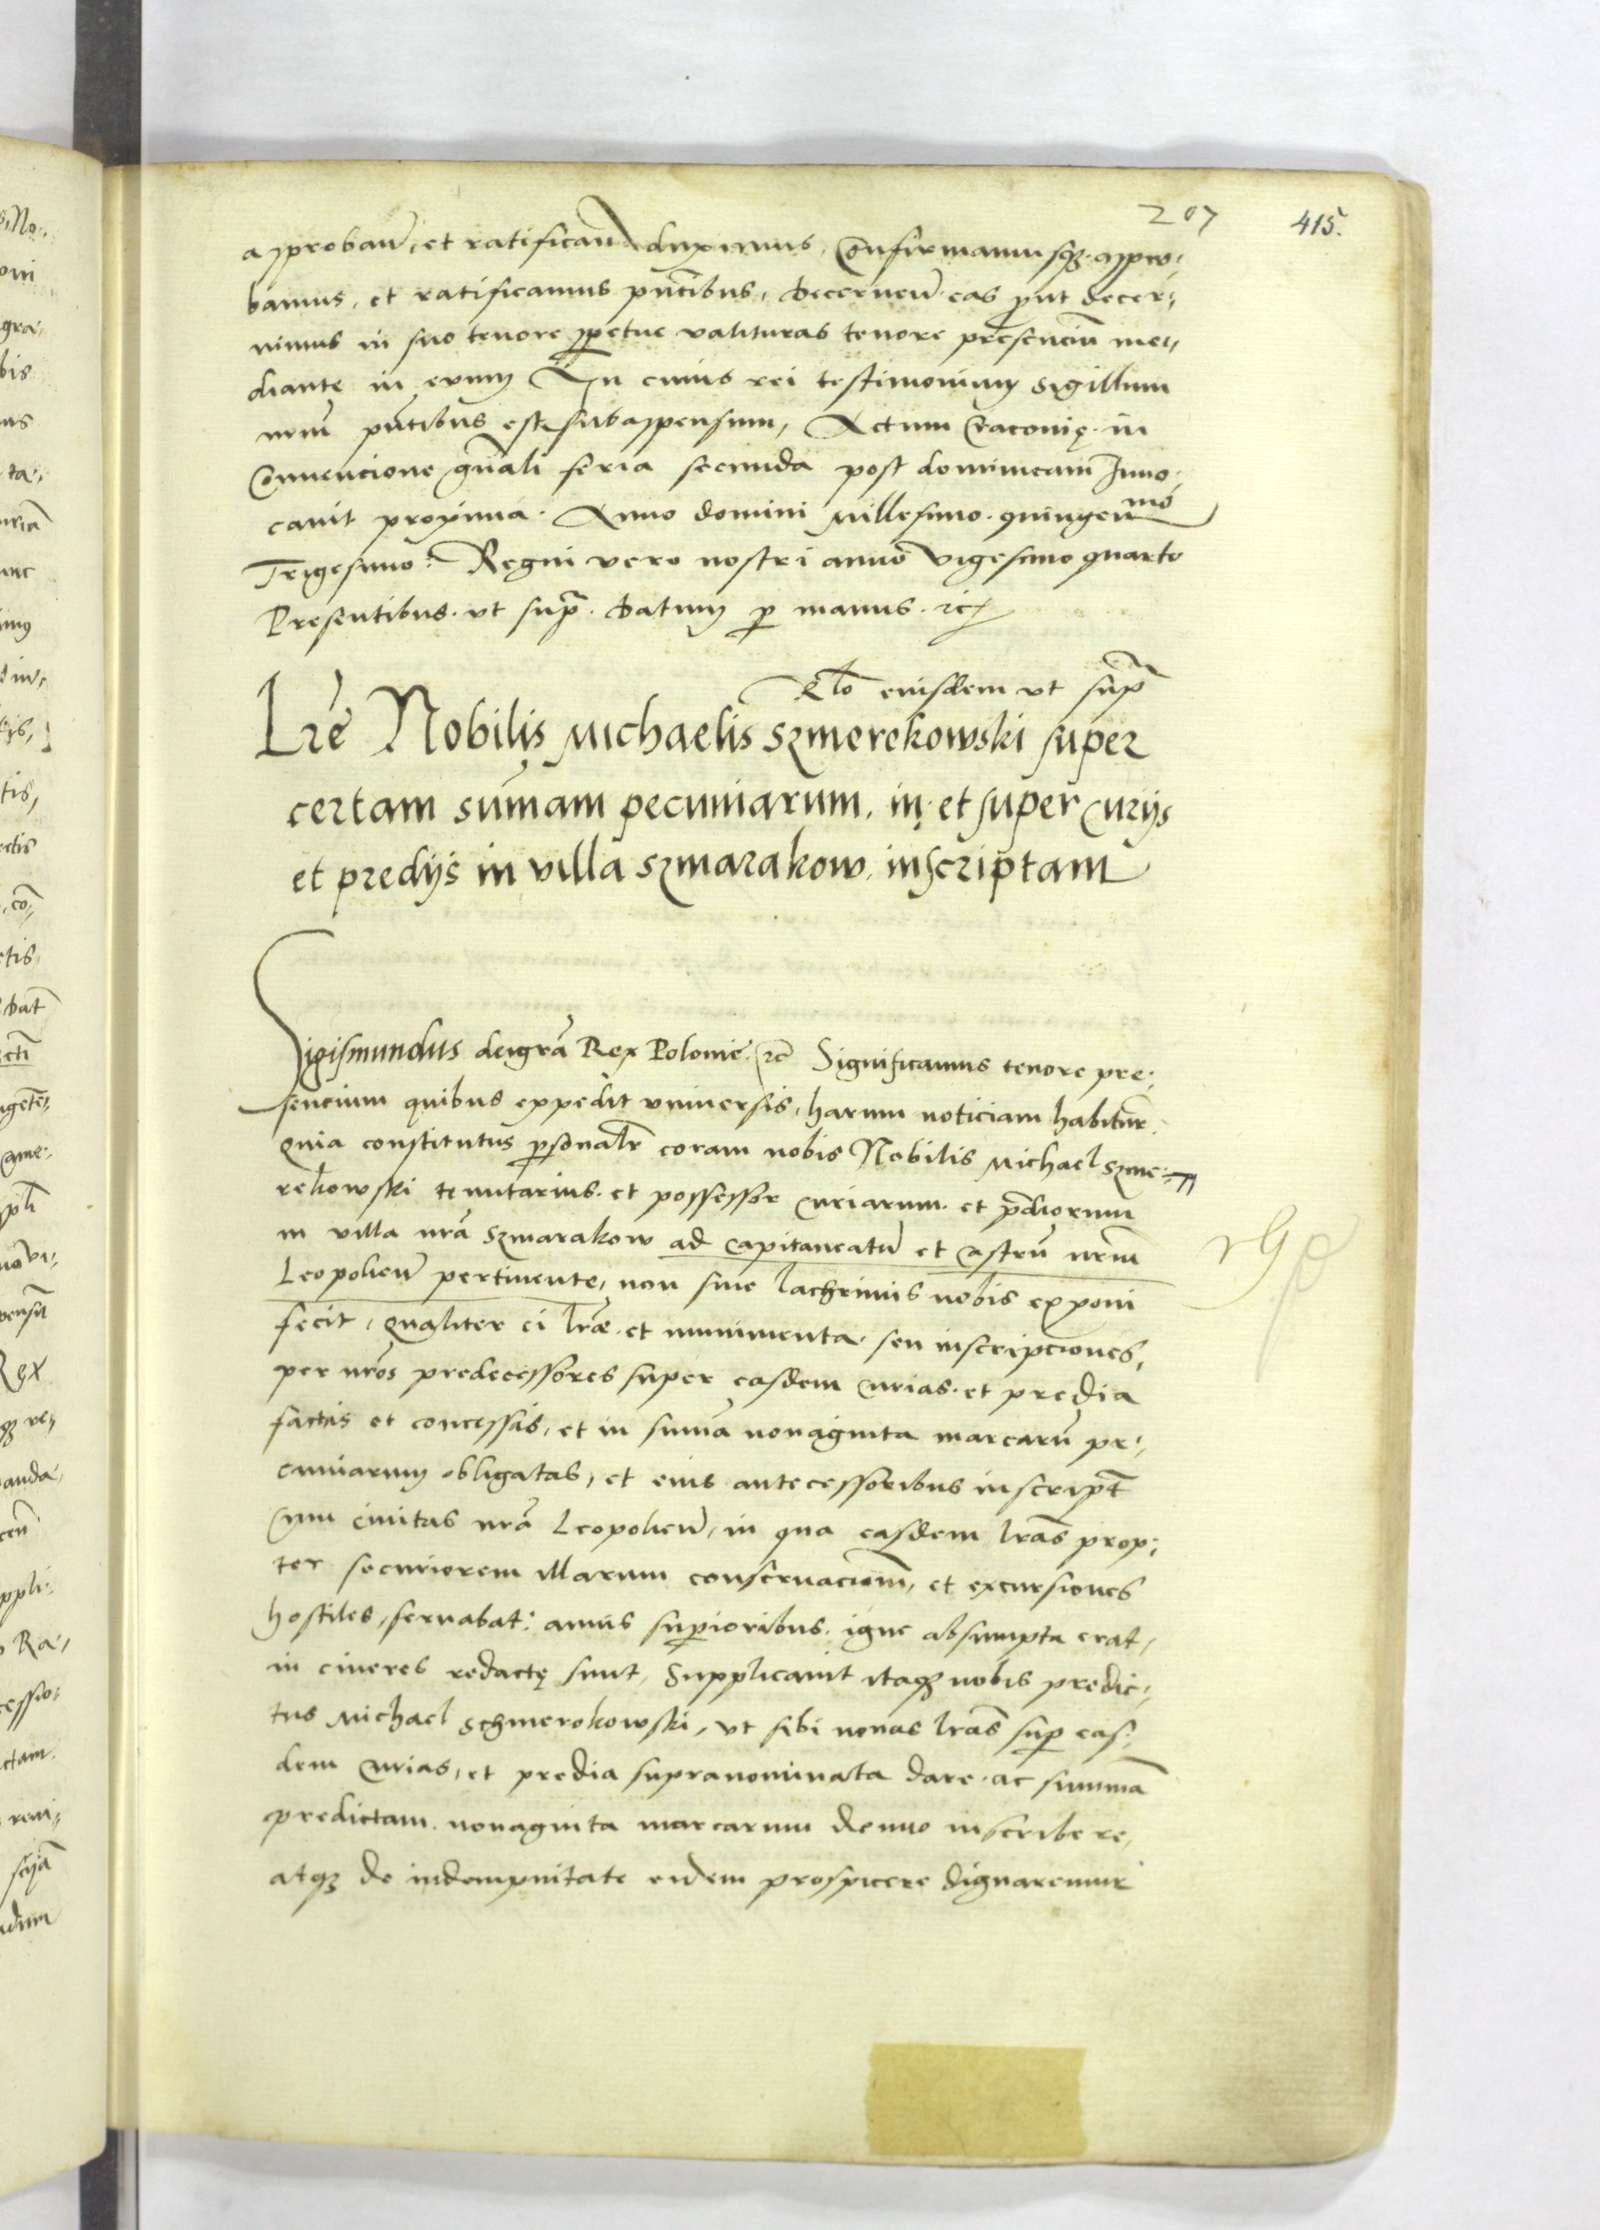 207 415.
approbaň, et ratificaň duximus, Confirmamusqz appro,
bamus, et ratificamus pñtibus, decerneň eas put decer,
nimus in suo tenore ppetue valituras tenore presenciũ me,
diante in evum In cuius rei testimonium sigillum
nrũm pñtibus est subappensum, Actum Cracovię in
Convencione gñali feria secunda post dominicam Invo,
cavit proxima. Anno domini Millesimo quingenmo
Trigesimo: Regni vero nostri anno Vigesimo quarto
Presentibus ut supra. datum p manus. rc
Rlo eiusdem ut supra
Lre Nobilis Michaelis Szmerekowski super
certam sumam pecuniarum, in et super curijs
et predijs in villa szmarakow, inscriptam
Sigismundus dei grã Rex Polonie rc Significamus tenore pre,
sencium quibus expedit universis, harum noticiam habitur.
Quia constitutus psonalr coram nobis Nobilis Michael szme,
rekowski tenutarius et possessor curiarum et pdiorum
in villa nrã szmarakow ad capitaneatũ et castrũ nrũm
Leopolieň pertinente, non sine lachrimis nobis exponi
fecit, Qualiter ei lræ et munimenta seu inscripciones,
per nrõs predecessores super easdem curias et predia
factis et concessis, et in suma nonaginta marcarũ pe,
cuniarum obligatas, et eius antecessoribus inscript
Cum civitas nrã Leopolieň, in qua easdem lrãs prop,
ter securiorem illarum conservacionem, et excursiones
hostiles, servabat: annis supioribus igne absumpta erat,
in cineres redactę sunt, Supplicavit itaqz nobis predic,
tus Michael Schmerokowski, ut sibi novas lrãs sup eas,
dem curias, et predia supranominata dare ac summã
predictam nonaginta marcarum denuo inscribere,
atqz de indempnitate eidem prospicere dignaremur